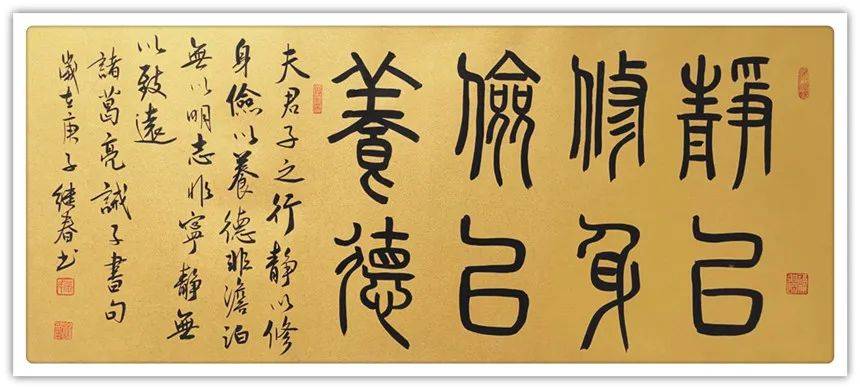 靜以
修身
儉以
養德
夫君子之行静以修
身儉以養德非澹泊
無以明志非寧静無
以致遠
諸葛亮誡子書句
歲在庚子继春书